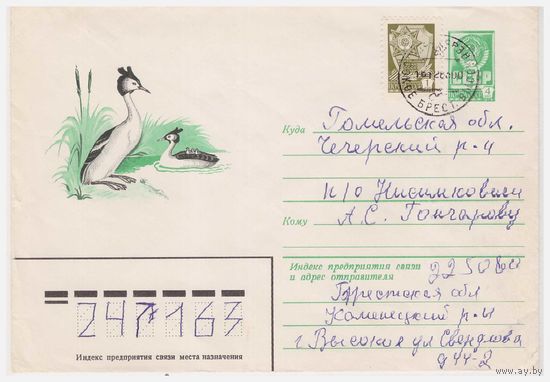 Куда Гомельская обл.
Чечерский р-н
п/о Нисимковичи
Кому А.С. Гончарову
Индекс предприятия связи
и адрес отправителя 225080
Брестская обл
Каменецкий р-н
г Высокое ул Свердлова
д 44-2
247163
Индекс предприятия связи места назначения
БРЕСТ
4
1
www.ay.by